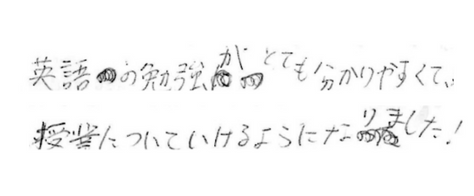 英語の勉強がとても分かりやすくて、
授業についていけるようになりました!